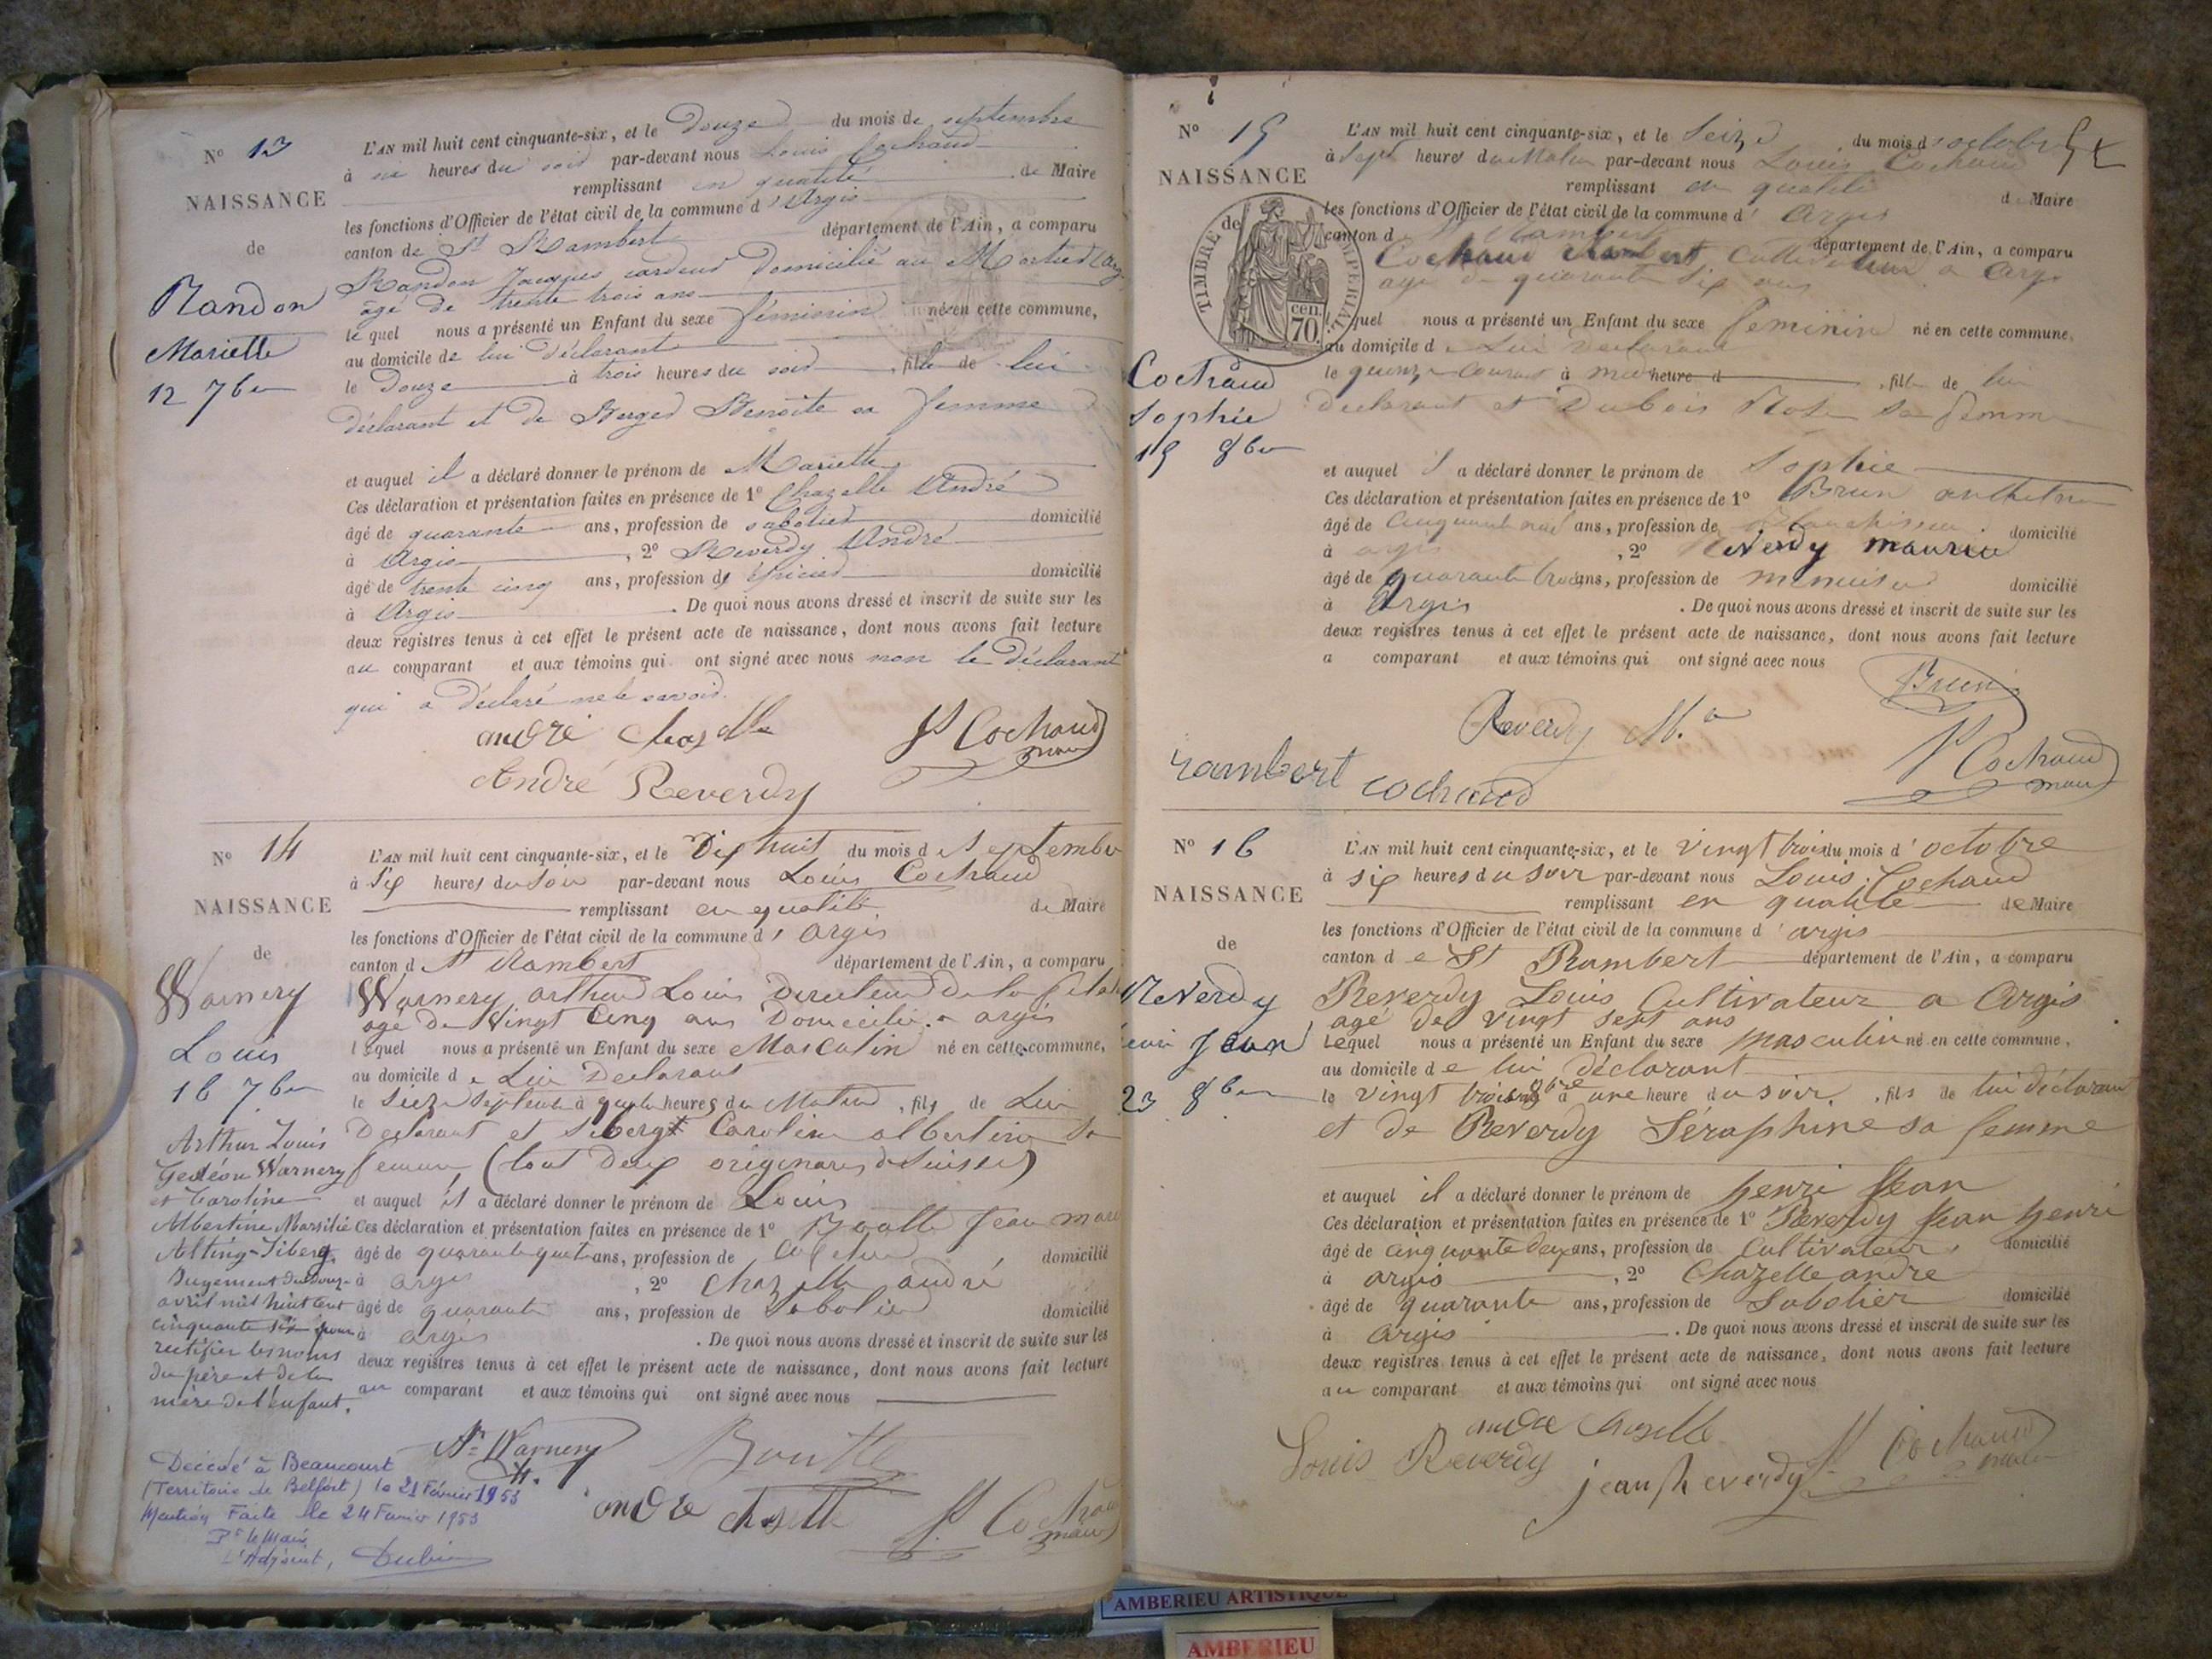 N° 13
NAISSANCE
de
Randon
Mariette
12 7bre
L'AN mil huit cent cinquante-six, et le Douze du mois de septembre
à six heures du soir par-devant nous Louis Cochaud
remplissant en qualité de Maire
les fonctions d'Officier de l'état civil de la commune d'Argis
canton de St Rambert département de l'Ain, a comparu
Randon Jacques cardeur Domicilié au
âgé de trente trois ans
le quel nous a présenté un Enfant du sexe féminin né en cette commune,
au domicile de lui déclarant
le Douze à trois heures du soir, fille de lui
déclarant et de Berger Benoîte sa femme
et auquel il a déclaré donner le prénom de Mariette
Ces déclaration et présentation faites en présence de 1° Chazelle André
âgé de quarante ans, profession de sabotier domicilié
à Argis, 2° Reverdy André
âgé de trente cinq ans, profession d'épicier domicilié
à Argis. De quoi nous avons dressé et inscrit de suite sur les
deux registres tenus à cet effet le présent acte de naissance, dont nous avons fait lecture
au comparant et aux témoins qui ont signé avec nous non le Déclarant
qui a déclaré ne le savoir.
andré chazelle
Ls Cochaud
maire
André Reverdy
N° 14
NAISSANCE
de
Warnery
Louis
16 7bre
Arthur Louis
Gedéon Warnery
et Caroline
Albertine Marsilie
Alting-Siberg.
Jugement du douze
avril mil huit cent
cinquante six pour
rectifier les noms
du père et de la
mère de l'enfant.
Décédé à Beaucourt
(Territoire de Belfort) le 21 Février 1953
Mention Faite le 24 Fevrier 1953
Pr le Maire
L'Adjoint,
L'AN mil huit cent cinquante-six, et le Dix huit du mois de Septembre
à Six heures du Soir par-devant nous Louis Cochaud
remplissant en qualité de Maire
les fonctions d'Officier de l'état civil de la commune d'argis
canton de St Rambert département de l'Ain, a comparu
Warnery arthur Louis Directeur de la
agé de Vingt Cinq ans Domicilié a argis
lequel nous a présenté un Enfant du sexe Masculin né en cette commune,
au domicile de Lui Declarant
le Seize Septembre à quatre heures du Matin, fils de Lui
Declarant et Siberg Caroline albertine Sa
femme (tout deux originaires de Suisse)
et auquel il a déclaré donner le prénom de Louis
Ces déclaration et présentation faites en présence de 1° Jean
âgé de quarante quatre ans, profession de domicilié
à argis, 2° chazelle andré
âgé de quarante ans, profession de Sabotier domicilié
à argis. De quoi nous avons dressé et inscrit de suite sur les
deux registres tenus à cet effet le présent acte de naissance, dont nous avons fait lecture
au comparant et aux témoins qui ont signé avec nous
Ar Warnery
andré chazelle
Ls Cochaud
maire
N° 15
NAISSANCE
de
TIMBRE IMPERIAL
70 cen.
Cochaud
Sophie
15 8bre
L'AN mil huit cent cinquante-six, et le Seize du mois d'octobre
à Sept heures du Matin par-devant nous Louis Cochaud
remplissant en qualité de Maire
les fonctions d'Officier de l'état civil de la commune d'Argis
canton de St Rambert département de l'Ain, a comparu
Cochaud Rambert Cultivateur a Argis
agé de quarante Six ans
lequel nous a présenté un Enfant du sexe feminin né en cette commune,
au domicile de Lui Declarant
le quinze Courant à midi heure d, fille de lui
declarant et Dubois Rose Sa femme
et auquel il a déclaré donner le prénom de Sophie
Ces déclaration et présentation faites en présence de 1° Brun anthelme
âgé de Cinquante neuf ans, profession de Blanchisseur domicilié
à argis, 2° Reverdy maurice
âgé de quarante trois ans, profession de menuisier domicilié
à Argis. De quoi nous avons dressé et inscrit de suite sur les
deux registres tenus à cet effet le présent acte de naissance, dont nous avons fait lecture
a comparant et aux témoins qui ont signé avec nous
Brun
Reverdy M.ce
rambert cochaud
Ls Cochaud
maire
N° 16
NAISSANCE
de
Reverdy
henri Jean
23 8bre
L'AN mil huit cent cinquante-six, et le vingt trois du mois d'octobre
à six heures du soir par-devant nous Louis Cochaud
remplissant en qualité de Maire
les fonctions d'Officier de l'état civil de la commune d'argis
canton de St Rambert département de l'Ain, a comparu
Reverdy Louis Cultivateur a Argis
agé de vingt sept ans
lequel nous a présenté un Enfant du sexe masculin né en cette commune,
au domicile de lui déclarant
le vingt trois 8bre à une heure du soir, fils de lui déclarant
et de Reverdy Séraphine sa femme
et auquel il a déclaré donner le prénom de henri Jean
Ces déclaration et présentation faites en présence de 1° Reverdy Jean henri
âgé de cinquante deux ans, profession de Cultivateur, domicilié
à argis, 2° Chazelle andré
âgé de quarante ans, profession de Sabotier domicilié
à argis. De quoi nous avons dressé et inscrit de suite sur les
deux registres tenus à cet effet le présent acte de naissance, dont nous avons fait lecture
au comparant et aux témoins qui ont signé avec nous
andré chazelle
Louis Reverdy
jean reverdy
Ls Cochaud
maire
AMBERIEU ARTISTIQUE
AMBERIEU